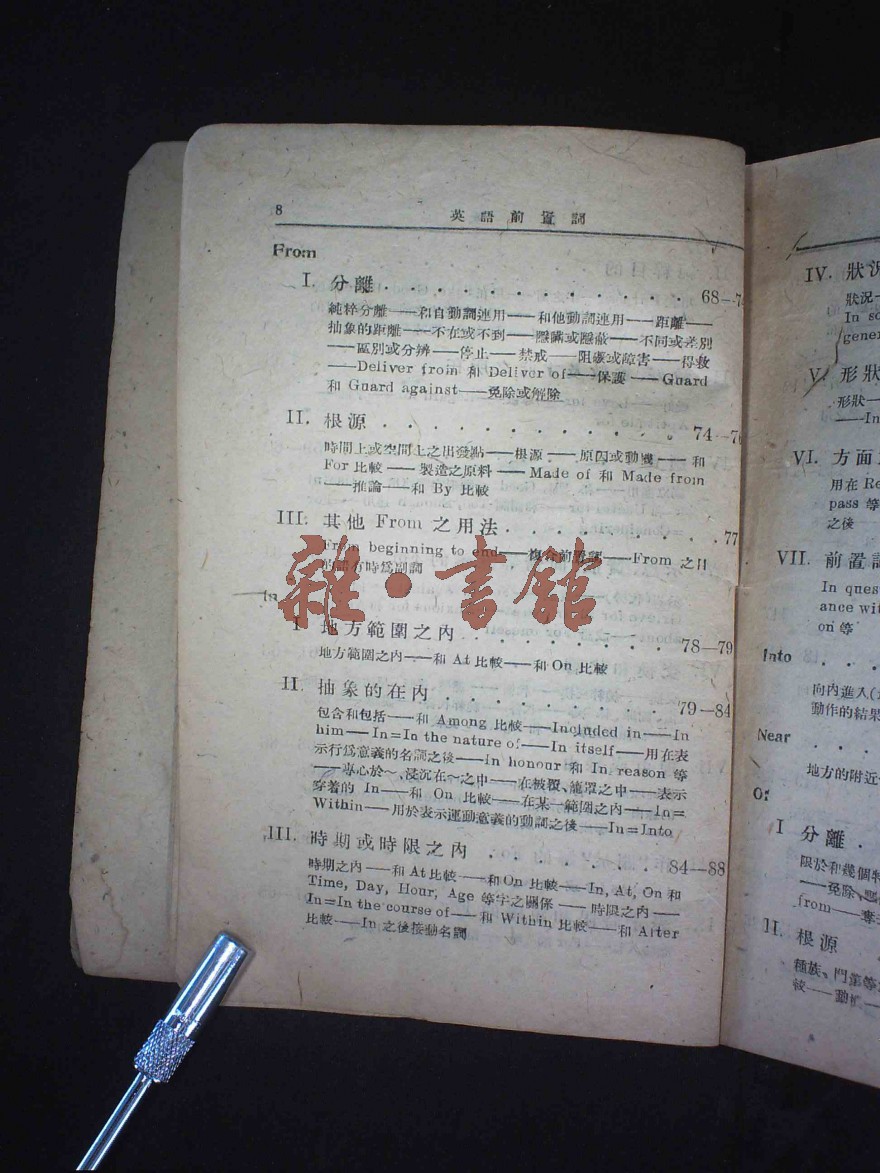 8 英語前置詞
From
I. 分離 . . . . . . . . . . . . 68—
純粹分離——和自動詞連用——和他動詞連用——距離——
抽象的距離——不在或不到——隱瞞或隱蔽——不同或差別
——區別或分辨——停止——禁戒——阻礙或障害——得救
——Deliver from 和 Deliver of——保護——Guard
和 Guard against——免除或解除
II. 根源 . . . . . . . . . . . . 74—
時間上或空間上之出發點——根源——原因或動機——和
For 比較——製造之原料——Made of 和 Made from
——推論——和 By 比較
III. 其他 From 之用法 . . . . . . . 77
From beginning to end——複合前置詞——From 之目
的語有時爲副詞
In
雜・書館
I 地方範圍之內 . . . . . . . . . 78—79
地方範圍之內——和 At 比較——和 On 比較
II. 抽象的在內 . . . . . . . . . . 79—84
包含和包括——和 Among 比較——Included in——In
him——In=In the nature of——In itself——用在表
示行爲意義的名詞之後——In honour 和 In reason 等
——專心於～、浸沉在～之中——在被覆、籠罩之中——表示
穿着的 In——和 On 比較——在某一範圍之內——In=
Within——用於表示運動意義的動詞之後——In=Into
III. 時期或時限之內 . . . . . . . . 84—88
時期之內——和 At 比較——和 On 比較——In, At, On 和
Time, Day, Hour, Age 等字之關係——時限之內——
In=In the course of——和 Within 比較——和 After
比較——In 之後接動名詞
IV. 狀況
狀況—
In so
gener
V. 形狀
形狀—
——In
VI. 方面
用在 Re
pass 等
之後
VII. 前置詞
In ques
ance wit
on 等
Into . . .
向內進入
動作的結果
Near . . .
地方的附近
Of
I 分離 .
限於和幾個特
——免除、
from——
II. 根源
種族、門第等
較——